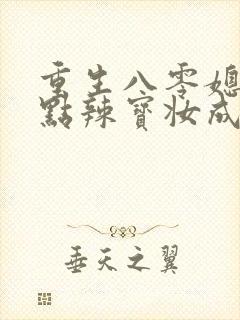 重生八零媳
點辣寶妝成
垂天之翼